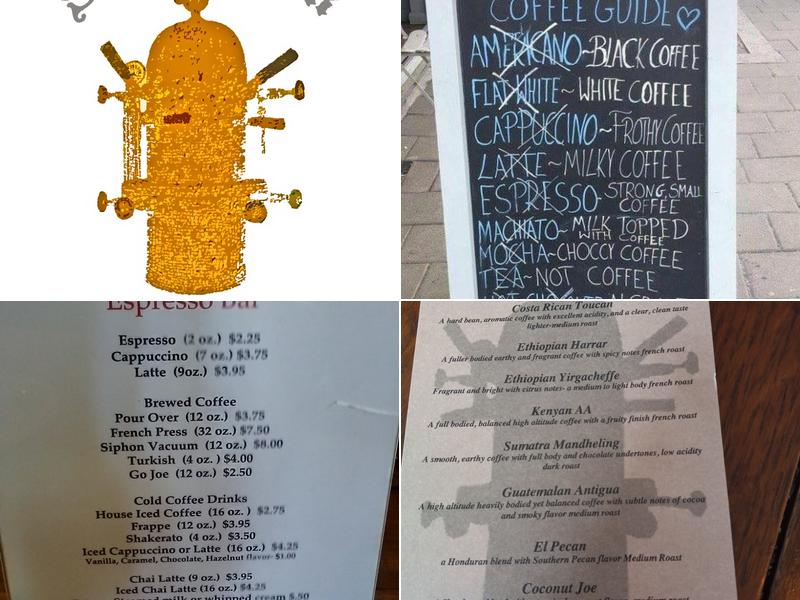 COFFEE GUIDE
AMERICANO~BLACK COFFEE
FLAT WHITE~WHITE COFFEE
CAPPUCCINO~FROTHY COFFEE
LATTE~MILKY COFFEE
ESPRESSO-STRONG, SMALL
COFFEE
MACHIATO~MILK TOPPED
WITH COFFEE
MOCHA~CHOCCY COFFEE
TEA~NOT COFFEE
Espresso Bar
Espresso (2 oz.) $2.25
Cappuccino (7 oz.) $3.75
Latte (9oz.) $3.95
Brewed Coffee
Pour Over (12 oz.) $3.75
French Press (32 oz.) $7.50
Siphon Vacuum (12 oz.) $8.00
Turkish (4 oz. ) $4.00
Go Joe (12 oz.) $2.50
Cold Coffee Drinks
House Iced Coffee (16 oz. ) $2.75
Frappe (12 oz.) $3.95
Shakerato (4 oz.) $3.50
Iced Cappuccino or Latte (16 oz.) $4.25
Vanilla, Caramel, Chocolate, Hazelnut flavor- $1.00
Chai Latte (9 oz.) $3.95
Iced Chai Latte (16 oz.) $4.25
Steamed milk or whipped cream $.50
Costa Rican Toucan
A hard bean, aromatic coffee with excellent acidity, and a clear, clean taste
lighter-medium roast
Ethiopian Harrar
A fuller bodied earthy and fragrant coffee with spicy notes french roast
Ethiopian Yirgacheffe
Fragrant and bright with citrus notes- a medium to light body french roast
Kenyan AA
A full bodied, balanced high altitude coffee with a fruity finish french roast
Sumatra Mandheling
A smooth, earthy coffee with full body and chocolate undertones, low acidity
dark roast
Guatemalan Antigua
A high altitude heavily bodied yet balanced coffee with subtle notes of cocoa
and smoky flavor medium roast
El Pecan
a Honduran blend with Southern Pecan flavor Medium Roast
Coconut Joe